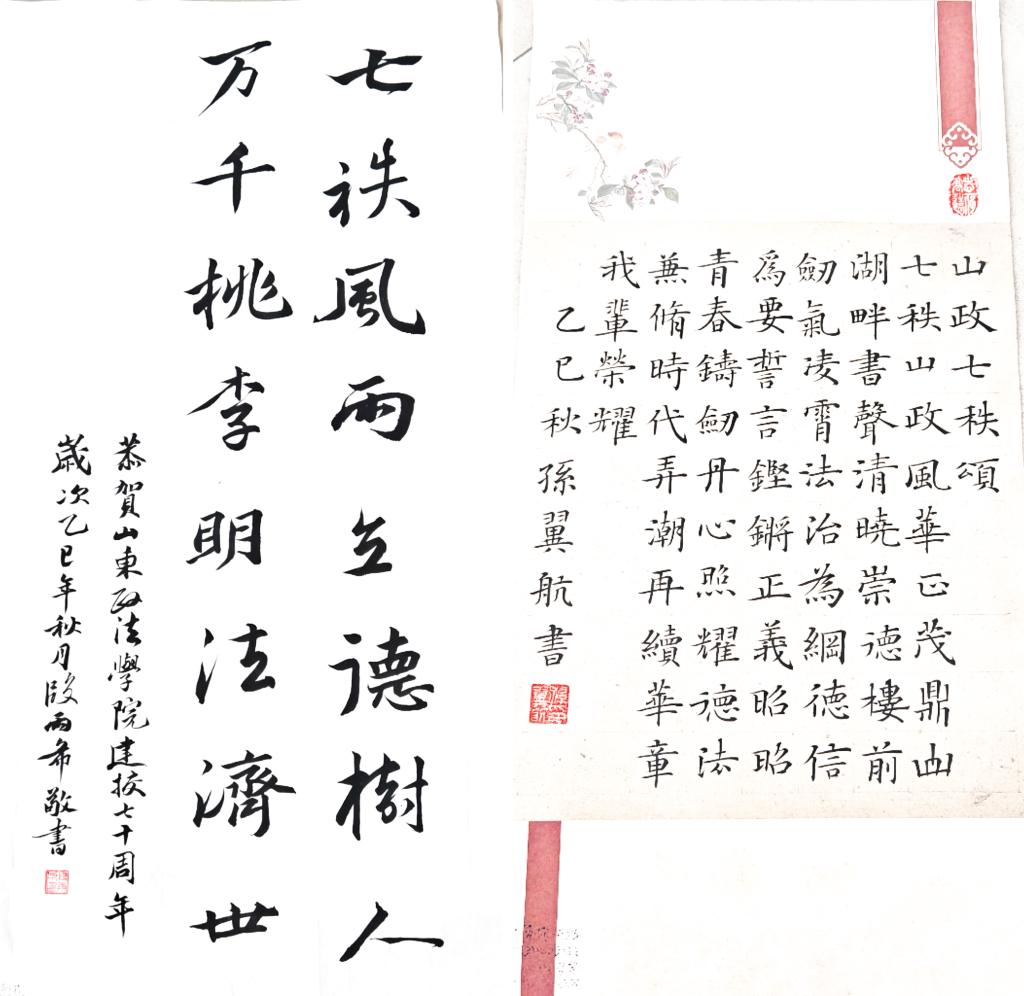 七祑風雨立德樹人
万千桃李明法濟世
恭賀山東政法學院建校七十周年
歲次乙巳年秋月段雨希敬書
山政七秩頌
七秩山政風華正茂鼎山
湖畔書聲清曉崇德樓前
劒氣凌霄法治為綱德信
爲要誓言鏗鏘正義昭昭
青春鑄劒丹心照耀德法
兼脩時代弄潮再續華章
我輩榮耀
乙巳秋孫翼航書